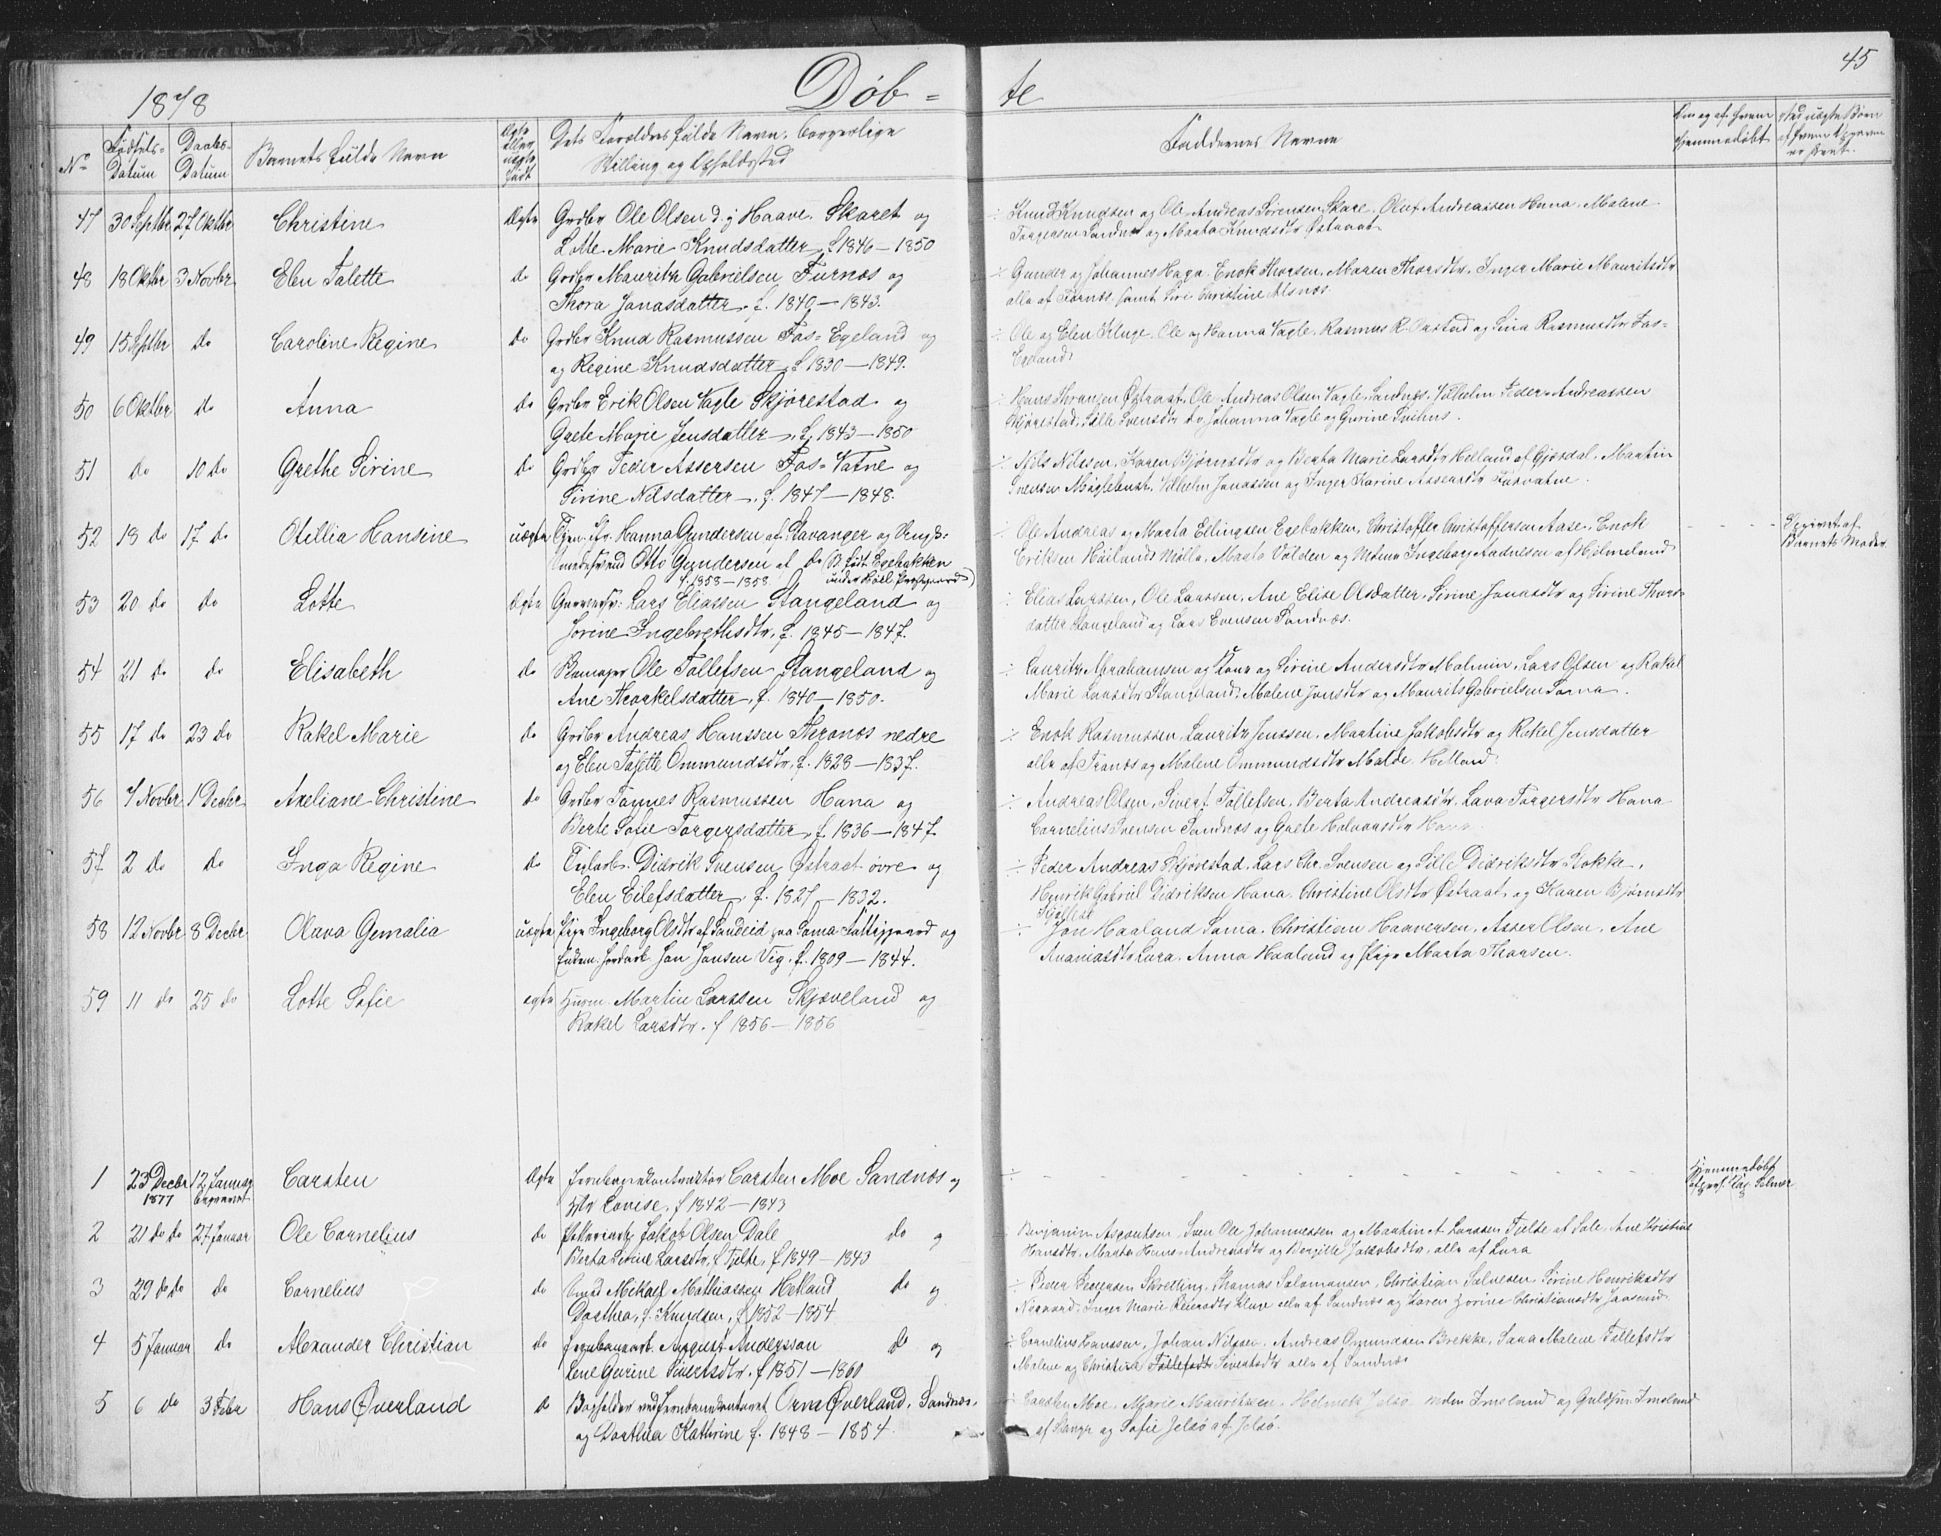 1878
Døb=
te
45
No
Fødsels-
Datum
Daabs-
Datum
Barnets fulde Navn
Ægte
eller
uægte
født
Dets Forældres fulde Navn, borgerlige
Stilling og Opholdssted
Faddernes Navne
Om og af hvem
hjemmedøbt
ved uægte Børn
af hvem Opgaven
er skeet.
47 30 Septbr 27 Oktbr Christine Ægte Grdbr Ole Olsen d. y Haave. Skaret og
Lotte Marie Knudsdatter, f. 1846 - 1850
÷ Knud Knudsen og Ole Andreas Sørensen Skare, Oluf Andreassen Hana, Malene
Torgersen Sandnes og Marta Knudsdtr Østraat
48 18 Oktbr 3 Novbr Elen Talette do Grdbr Mauritz Gabrielsen Furnæs og
Thora Jonasdatter, f. 1840 - 1843.
÷ Gunder og Johannes Haga. Enok Thorsen, Maren Thorsdtr, Inger Marie Mauritsdtr
alle af Førnæs, samt Siri Christine Alsnæs.
49 15 Septbr do Caroline Regine do Grdbr Knud Rasmussen Fos=Egeland og
og Regine Knudsdatter, f. 1830 - 1849.
÷ Ole og Elen Kluge, Ole og Hanna Vagle, Rasmus R. Oastad og Sina Rasmusdtr Fos=
Egeland.
50 6 Oktbr do Anna do Grdbr Erik Olsen Vagle Skjørestad og
Grete Marie Jensdatter, f. 1843 - 1850
÷ Hans Thransen Østraat, Ole Andreas Olsen Vagle, Sandnæs, Vilhelm Peder Andreassen
Skjørestad, Sille Svensdtr do Johanna Vagle og Gurine Tvihus.
51 do 10 do Grethe Sirine do Grdbr Peder Assersen Fos=Vatne og
Sirine Nilsdatter, f. 1847 - 1848.
÷ Nils Nilssen, Karen Bjørnsdtr og Berta Marie Larsdtr Helland af Gjesdal, Martin
Svensen Møglebust, Vilhelm Jonassen og Inger Karine Assersdtr Fosvatne.
52 13 do 17 do Otillia Hansine uægte Tjen. p. Hanna Gundersen af Stavanger og Ungk.
Otto Gundersen af do (B. født Egebakken
f. 1853 - 1853. under Høle Præstegaard)
÷ Ole Andreas og Marta Ellingsen Egebakken, Christoffer Christoffersen Aase, Enok
Eriksen Høilands Mølla, Marta Volden og Mdme Ingeborg Aadnesen af Hjelmeland
Opgivet af
Barnets Moder
53 20 do do Lotte Ægte Garversv. Lars Eliassen Stangeland og
Jorine Ingebrethsdtr, f. 1845 - 1847.
÷ Elias Larssen, Ole Larssen, Ane Elise Olsdatter, Sirine Jonasdtr og Sirine Thors=
datter Stangeland og Lars Evensen Sandnæs.
54 21 do do Elisabeth do Ole Tollefsen Stangeland og
Ane Thorkelsdatter, f. 1840 - 1850.
÷ Lauritz Abrahamsen og Kone og Sirine Andersdtr Malmin, Lars Olsen og Rakel
Marie Larsdtr Stangeland, Malene Jonsdtr og Maurits Gabrielsen Soma.
55 17 do 23 do Rakel Marie do Grdbr Andreas Hanssen Thronæs nedre
og Elen Tajette Ommundsdtr, f. 1828 - 1837.
÷ Enok Rasmussen, Lauritz Jenssen, Martine Jakobsdtr og Rakel Jensdatter
alle af Tranæs og Malene Ommundsdtr Malde, Helland.
56 7 Novbr 1 Decbr Axeliane Christine do Grdbr Tønnes Rasmussen Hana og
Berte Sofie Torgersdatter, f. 1836 - 1847.
÷ Andreas Olsen, Sivert Tollefsen, Berta Andreasdtr, Lava Torgersdtr Hana
Cornelius Svensen Sandnæs og Grete Halvorsdtr Hana
57 2 do do Inga Regine do Teglarb. Didrik Svensen Østraat øvre og
Elen Eilefsdatter, f. 1827 - 1832.
÷ Peder Andreas Skjørestad, Lars Chr. Svensen og Sille Didriksdtr Stokke,
Henrik Gabriel Didriksen Hana, Christine Olsdtr Østraat og Karen Bjørnsdtr
58 12 Novbr 8 Decbr Olava Gemalia uægte Pige Ingeborg Olsdtr af Sandeid paa Soma Fattiggaard og
Enkem. Jordarb. Jon Jonsen Vig, f. 1809 - 1844.
÷ Jon Haaland Soma, Christian Haaversen, Asser Olsen, Ane
Ananiasdtr Lura, Anna Haaland og Pige Marta Thorsen.
59 11 do 25 do Lotte Sofie ægte Husm. Martin Larssen Skjæveland og
Rakel Larsdtr. f 1856 - 1856
1 23 Decbr 1877 12 Januar Carsten Ægte Jernbanekontraktør Carsten Moe Sandnæs og
Louise, f 1842 - 1843
÷
Hjemmedøbt
2 21 do do 27 Januar Ole Cornelius do Jakob Olsen Dale do og
Berta Serine Larsdtr, f. Tjelte, f 1849 - 1843
Benjamin Asgautsen, Sven Ole Johannessen og Martin A. Larssen Tjelte af Sole, Ane Kristine
Hansdtr, Marta Hans Andreasdtr og Bergille Jakobsdtr, alle af Lura
3 29 do do do Cornelius do Smed Mikael Mathiassen Hetland do og
Dorthea, f. Knudsen, f 1852 - 1854
÷ Peder Bergesen Skretting, Thomas Salomonsen, Christian Salvesen, Sirine Henriksdtr
4 5 Januar do Alexander Christian do Jernbanearb. August Anderssan do og
Lene Gurine Sivertsdtr, f 1851 - 1860
÷ Cornelius Hanssen, Johan Nilsson, Andreas Omundsen Brekke, Sara Malene Tollefsdtr
Malene og Christina Tollefsdtr Sivertsdtr alle af Sandnæs
5 6 do 3 Febr Hans Øverland do Bogholder ved Jernbanekontoret Orm Øverland, Sandnæs,
og Dorthea Kathrine f. 1848 - 1854.
÷ Carsten Moe, Marie Mauritzen,
og Sofie Jelsø af Jelsø.